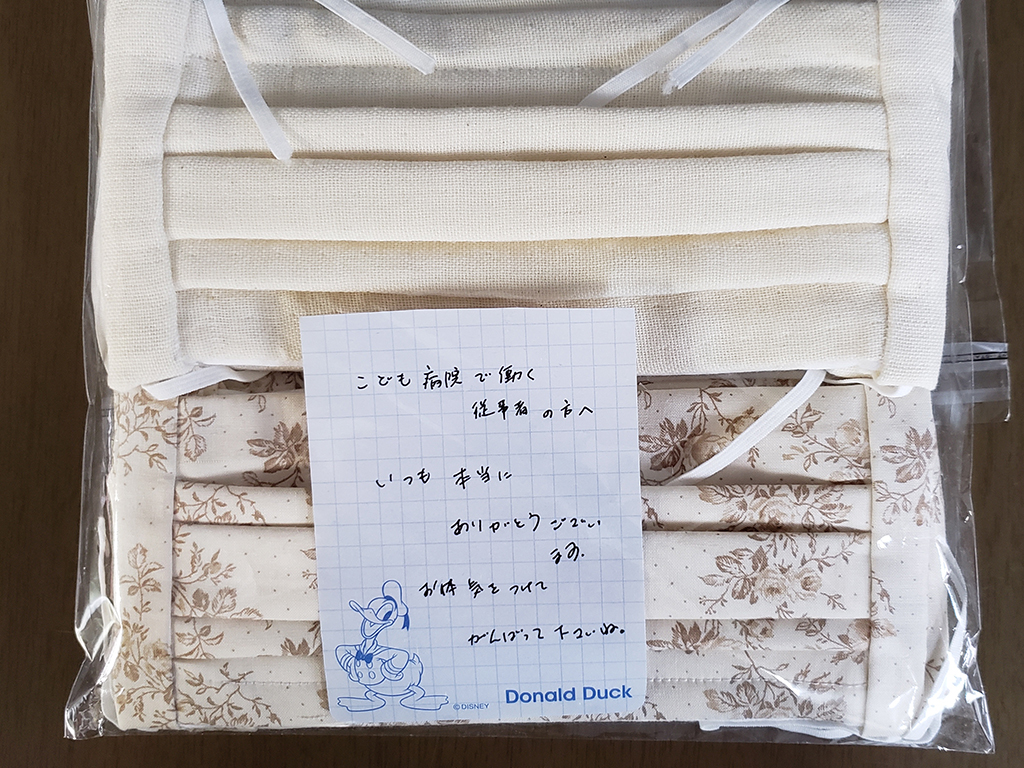 こども病院で働く
従事者の方へ
いつも本当に
ありがとうござい
ます.
お体気をつけて
がんばって下さいね。
© DISNEY
Donald Duck